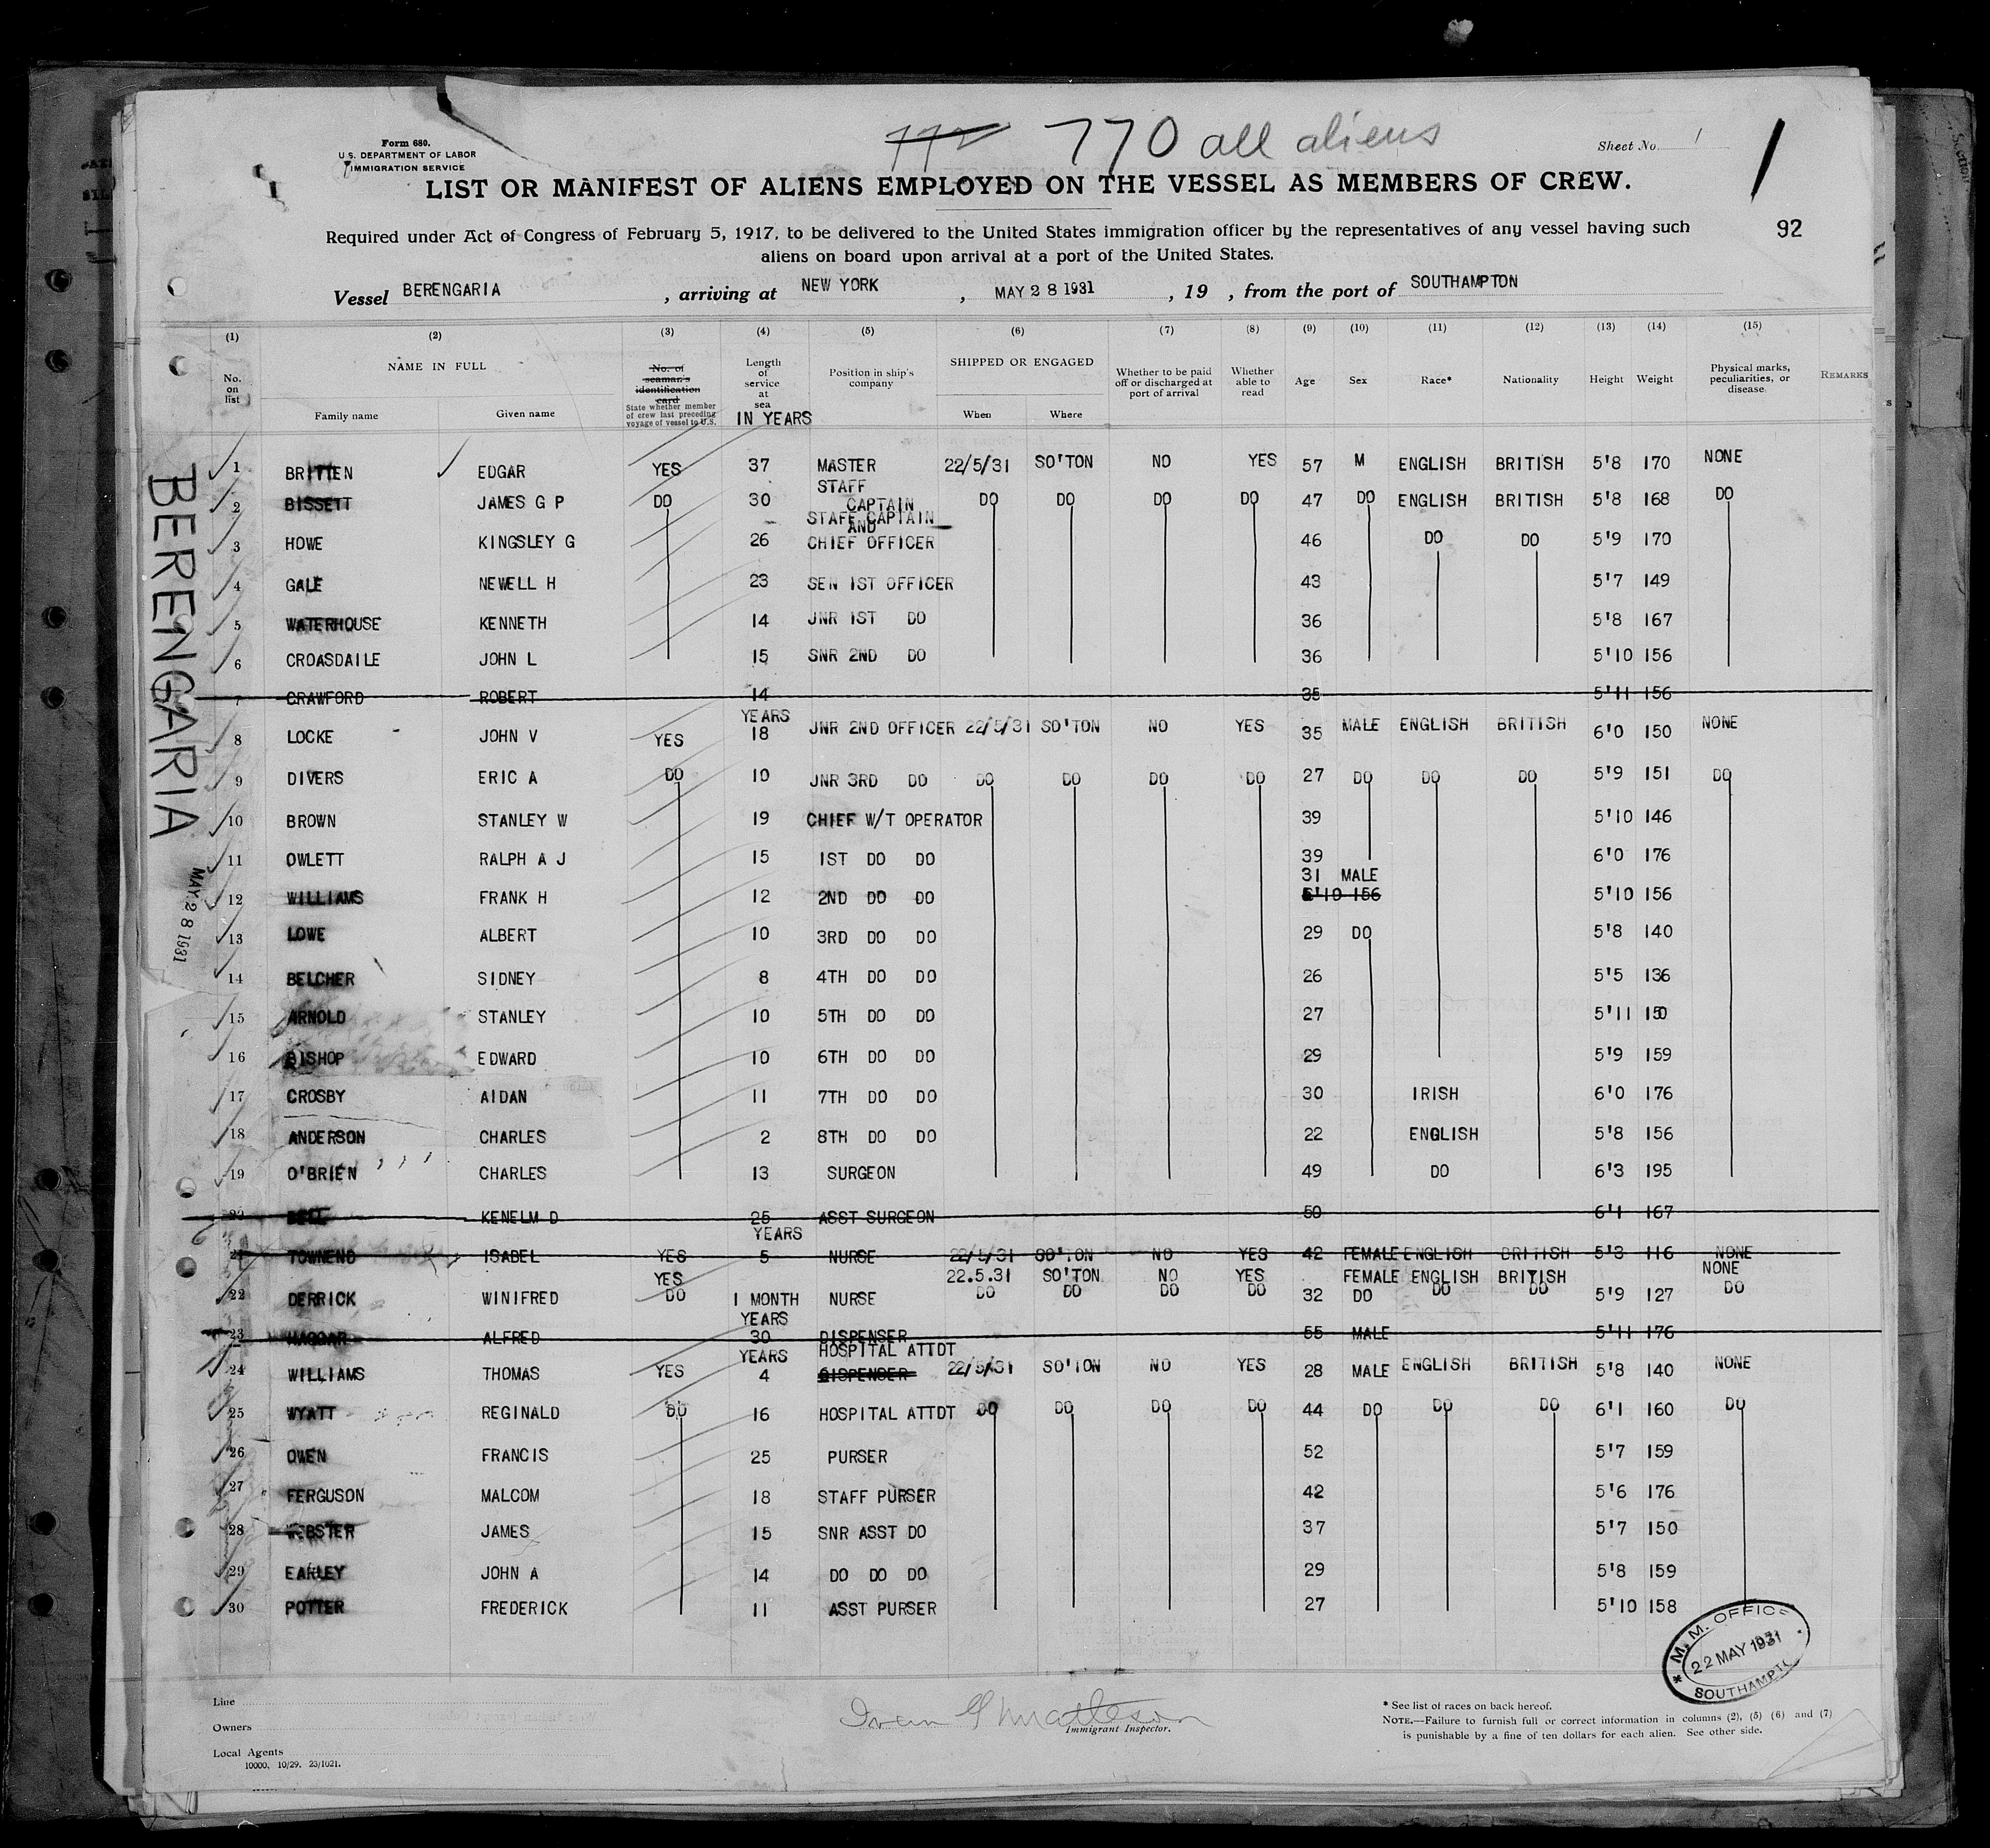 772 770 all aliens
Form 680.
U.S. DEPARTMENT OF LABOR
IMMIGRATION SERVICE
Sheet No. 1
LIST OR MANIFEST OF ALIENS EMPLOYED ON THE VESSEL AS MEMBERS OF CREW.
92
Required under Act of Congress of February 5, 1917, to be delivered to the United States immigration officer by the representatives of any vessel having such
aliens on board upon arrival at a port of the United States.
Vessel BERENGARIA, arriving at NEW YORK, MAY 28 1931, 19 , from the port of SOUTHAMPTON
(1) (2) (3) (4) (5) (6) (7) (8) (9) (10) (11) (12) (13) (14) (15)
No. on list NAME IN FULL Family name Given name No. of seaman's identification card State whether member of crew last preceding voyage of vessel to U.S. Length of service at sea IN YEARS Position in ship's company SHIPPED OR ENGAGED When Where Whether to be paid off or discharged at port of arrival Whether able to read Age Sex Race* Nationality Height Weight Physical marks, peculiarities, or disease. REMARKS
BERENGARIA
MAY 28 1931
1 BRITTEN EDGAR YES 37 MASTER 22/5/31 SO'TON NO YES 57 M ENGLISH BRITISH 5'8 170 NONE
2 BISSETT JAMES G P DO 30 STAFF CAPTAIN DO DO DO DO 47 DO ENGLISH BRITISH 5'8 168 DO
3 HOWE KINGSLEY G 26 STAFF CAPTAIN AND CHIEF OFFICER 46 DO DO 5'9 170
4 GALE NEWELL H 23 SEN 1ST OFFICER 43 5'7 149
5 WATERHOUSE KENNETH 14 JNR 1ST DO 36 5'8 167
6 CROASDAILE JOHN L 15 SNR 2ND DO 36 5'10 156
7 CRAWFORD ROBERT 14 35 5'11 156
8 LOCKE JOHN V YES YEARS 18 JNR 2ND OFFICER 22/5/31 SO'TON NO YES 35 MALE ENGLISH BRITISH 6'0 150 NONE
9 DIVERS ERIC A DO 10 JNR 3RD DO DO DO DO DO 27 DO DO DO 5'9 151 DO
10 BROWN STANLEY W 19 CHIEF W/T OPERATOR 39 5'10 146
11 OWLETT RALPH A J 15 1ST DO DO 39 6'0 176
12 WILLIAMS FRANK H 12 2ND DO DO 31 MALE 5'10 156 5'10 156
13 LOWE ALBERT 10 3RD DO DO 29 DO 5'8 140
14 BELCHER SIDNEY 8 4TH DO DO 26 5'5 136
15 ARNOLD STANLEY 10 5TH DO DO 27 5'11 150
16 BISHOP EDWARD 10 6TH DO DO 29 5'9 159
17 CROSBY AIDAN 11 7TH DO DO 30 IRISH 6'0 176
18 ANDERSON CHARLES 2 8TH DO DO 22 ENGLISH 5'8 156
19 O'BRIEN CHARLES 13 SURGEON 49 DO 6'3 195
20 BELL KENELM D 25 ASST SURGEON 50 6'1 167
21 TOWNEND ISABEL YES YEARS 5 NURSE 22/5/31 SO'TON NO YES 42 FEMALE ENGLISH BRITISH 5'3 116 NONE
YES 22.5.31 SO'TON NO YES FEMALE ENGLISH BRITISH NONE
22 DERRICK WINIFRED DO 1 MONTH NURSE DO DO DO DO 32 DO DO DO 5'9 127 DO
23 HAGGAR ALFRED YEARS 30 DISPENSER 55 MALE 5'11 176
24 WILLIAMS THOMAS YES YEARS 4 HOSPITAL ATTDT DISPENSER 22/5/31 SO'TON NO YES 28 MALE ENGLISH BRITISH 5'8 140 NONE
25 WYATT REGINALD DO 16 HOSPITAL ATTDT DO DO DO DO 44 DO DO DO 6'1 160 DO
26 OWEN FRANCIS 25 PURSER 52 5'7 159
27 FERGUSON MALCOM 18 STAFF PURSER 42 5'6 176
28 WEBSTER JAMES 15 SNR ASST DO 37 5'7 150
29 EARLEY JOHN A 14 DO DO DO 29 5'8 159
30 POTTER FREDERICK 11 ASST PURSER 27 5'10 158
* M. M. OFFICE
22 MAY 1931
SOUTHAMPTON
Line
Owners
Local Agents
10000, 10/29. 23/1021.
Immigrant Inspector.
* See list of races on back hereof.
NOTE.—Failure to furnish full or correct information in columns (2), (5) (6) and (7)
is punishable by a fine of ten dollars for each alien. See other side.